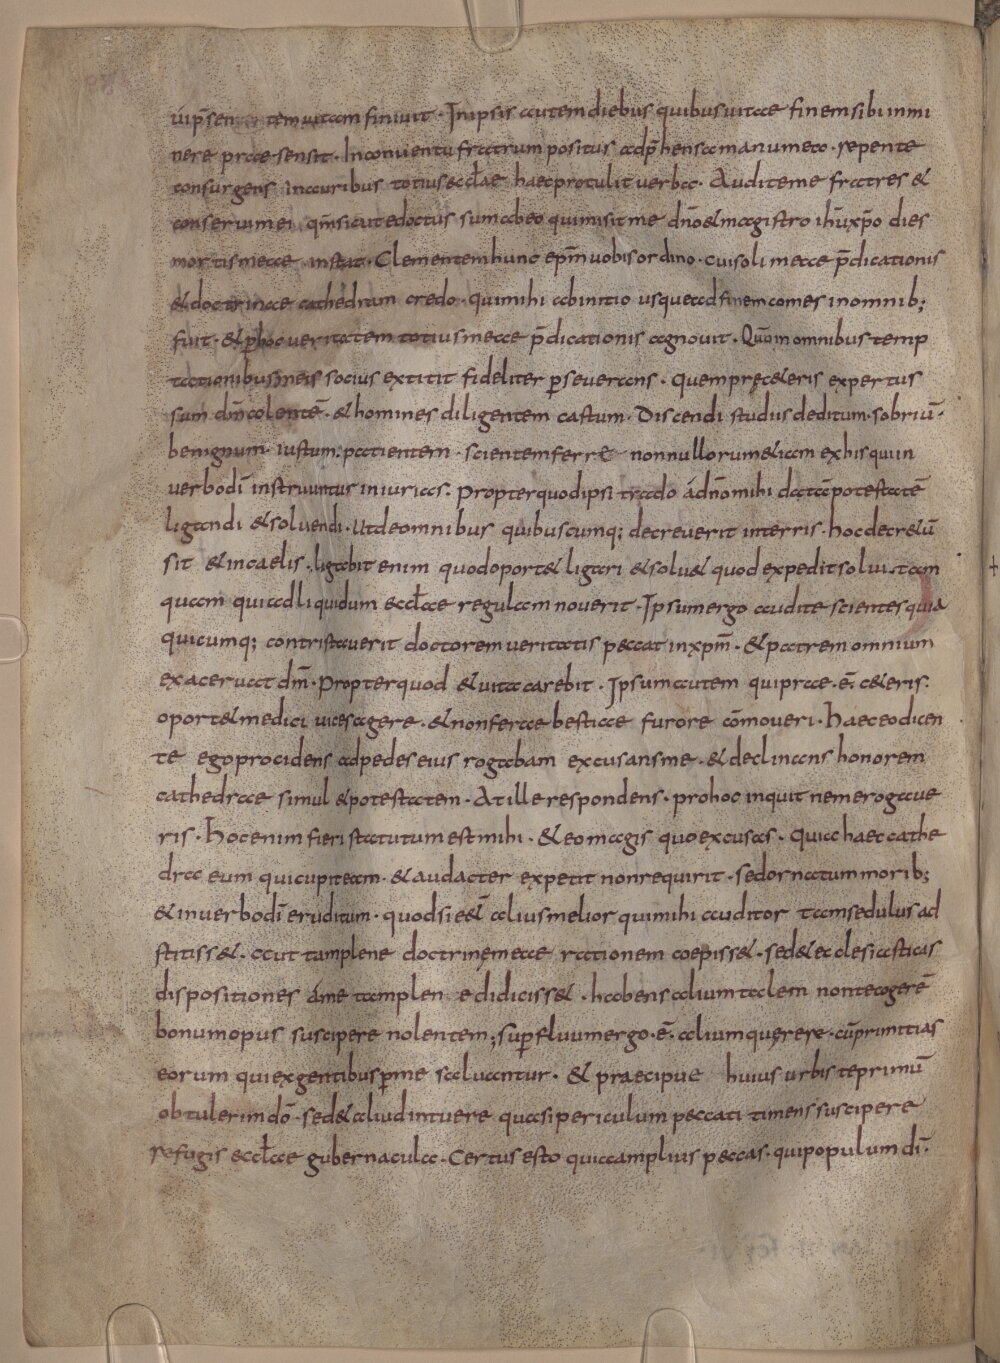 uip̄sen tem uitam finiuit · In ipsis autem diebus quibus uitae finem sibi inmi
nere praesensit · In conuentu fratrum positus adp̄hensa manu mea · repente
consurgens in auribus totius eccl̄ae haec protulit uerba · Audite me fratres &
conserui mei qm̄ sicut edoctus sum ab eo qui misit me dn̄o & magistro ih̄u xp̄o dies
mortis meae instat · Clementem hunc ep̄m uobis ordino · cui soli meae p̄dicationis
& doctrinae cathedram credo · qui mihi ab initio usque ad finem comes in omnib;
fuit · & p̱ hoc ueritatem totius meae p̄dicationis agnouit · Quō in omnibus temp
tationibus meis socius extitit fideliter p̱seuerans · Quem prę cęteris expertus
sum dm̄ colentē · & homines diligentem castum · Discendi studiis deditum · sobriū ·
benignum · iustum · patientem · scientem ferre nonnullorum &iam ex his qui in
uerbo dī instruuntur iniurias · Propter quod ipsi trado á dn̄o mihi datā potestatē
ligandi & soluendi · Ut de omnibus quibuscumq; decreuerit in terris · hoc decr&ū
sit & in caelis · ligabit enim quod oport& ligari & solu& quod expedit solui · tam
quam qui ad liquidum eccl̄ae regulam nouerit · Ipsum ergo audite scientes quia
quicumq; contristauerit doctorem ueritatis peccat in xpm̄ · & patrem omnium
exaceruat dm̄ · Propter quod & uita carebit · Ipsum autem qui prae · ē · c&eris ·
oport& medici uices agere · & non ferae bestiae furore cōmoueri · Haec eo dicen
te ego procidens ad pedes eius rogabam excusans me · & declinans honorem
cathedrae simul & potestatem · At ille respondens · pro hoc inquit ne me rogaue
ris · Hoc enim fieri statutum est mihi · & eo magis quo excusas · Quia haec cathe
dra eum qui cupit eam · & audacter expetit non requirit · sed ornatum morib;
& in uerbo dī eruditum · quod si e&̄ alius melior qui mihi auditor tam sedulus ad
stitiss& · aut tam plene doctrinę meae rationem coepiss& · sed & ecclesiasticas
dispositiones á me tam plen e didiciss& · habens alium talem non te cogerē
bonum opus suscipere nolentem; sup̱fluum ergo · ē · alium quęrere · cū primitias
eorum qui ex gentibus p̱ me saluantur · & praecipue huius urbis te primū
obtulerim dō · sed & aliud intuere quasi periculum peccati timens suscipere
refugis eccl̄ae gubernacula · Certus esto quia amplius peccas · qui populum dī ·